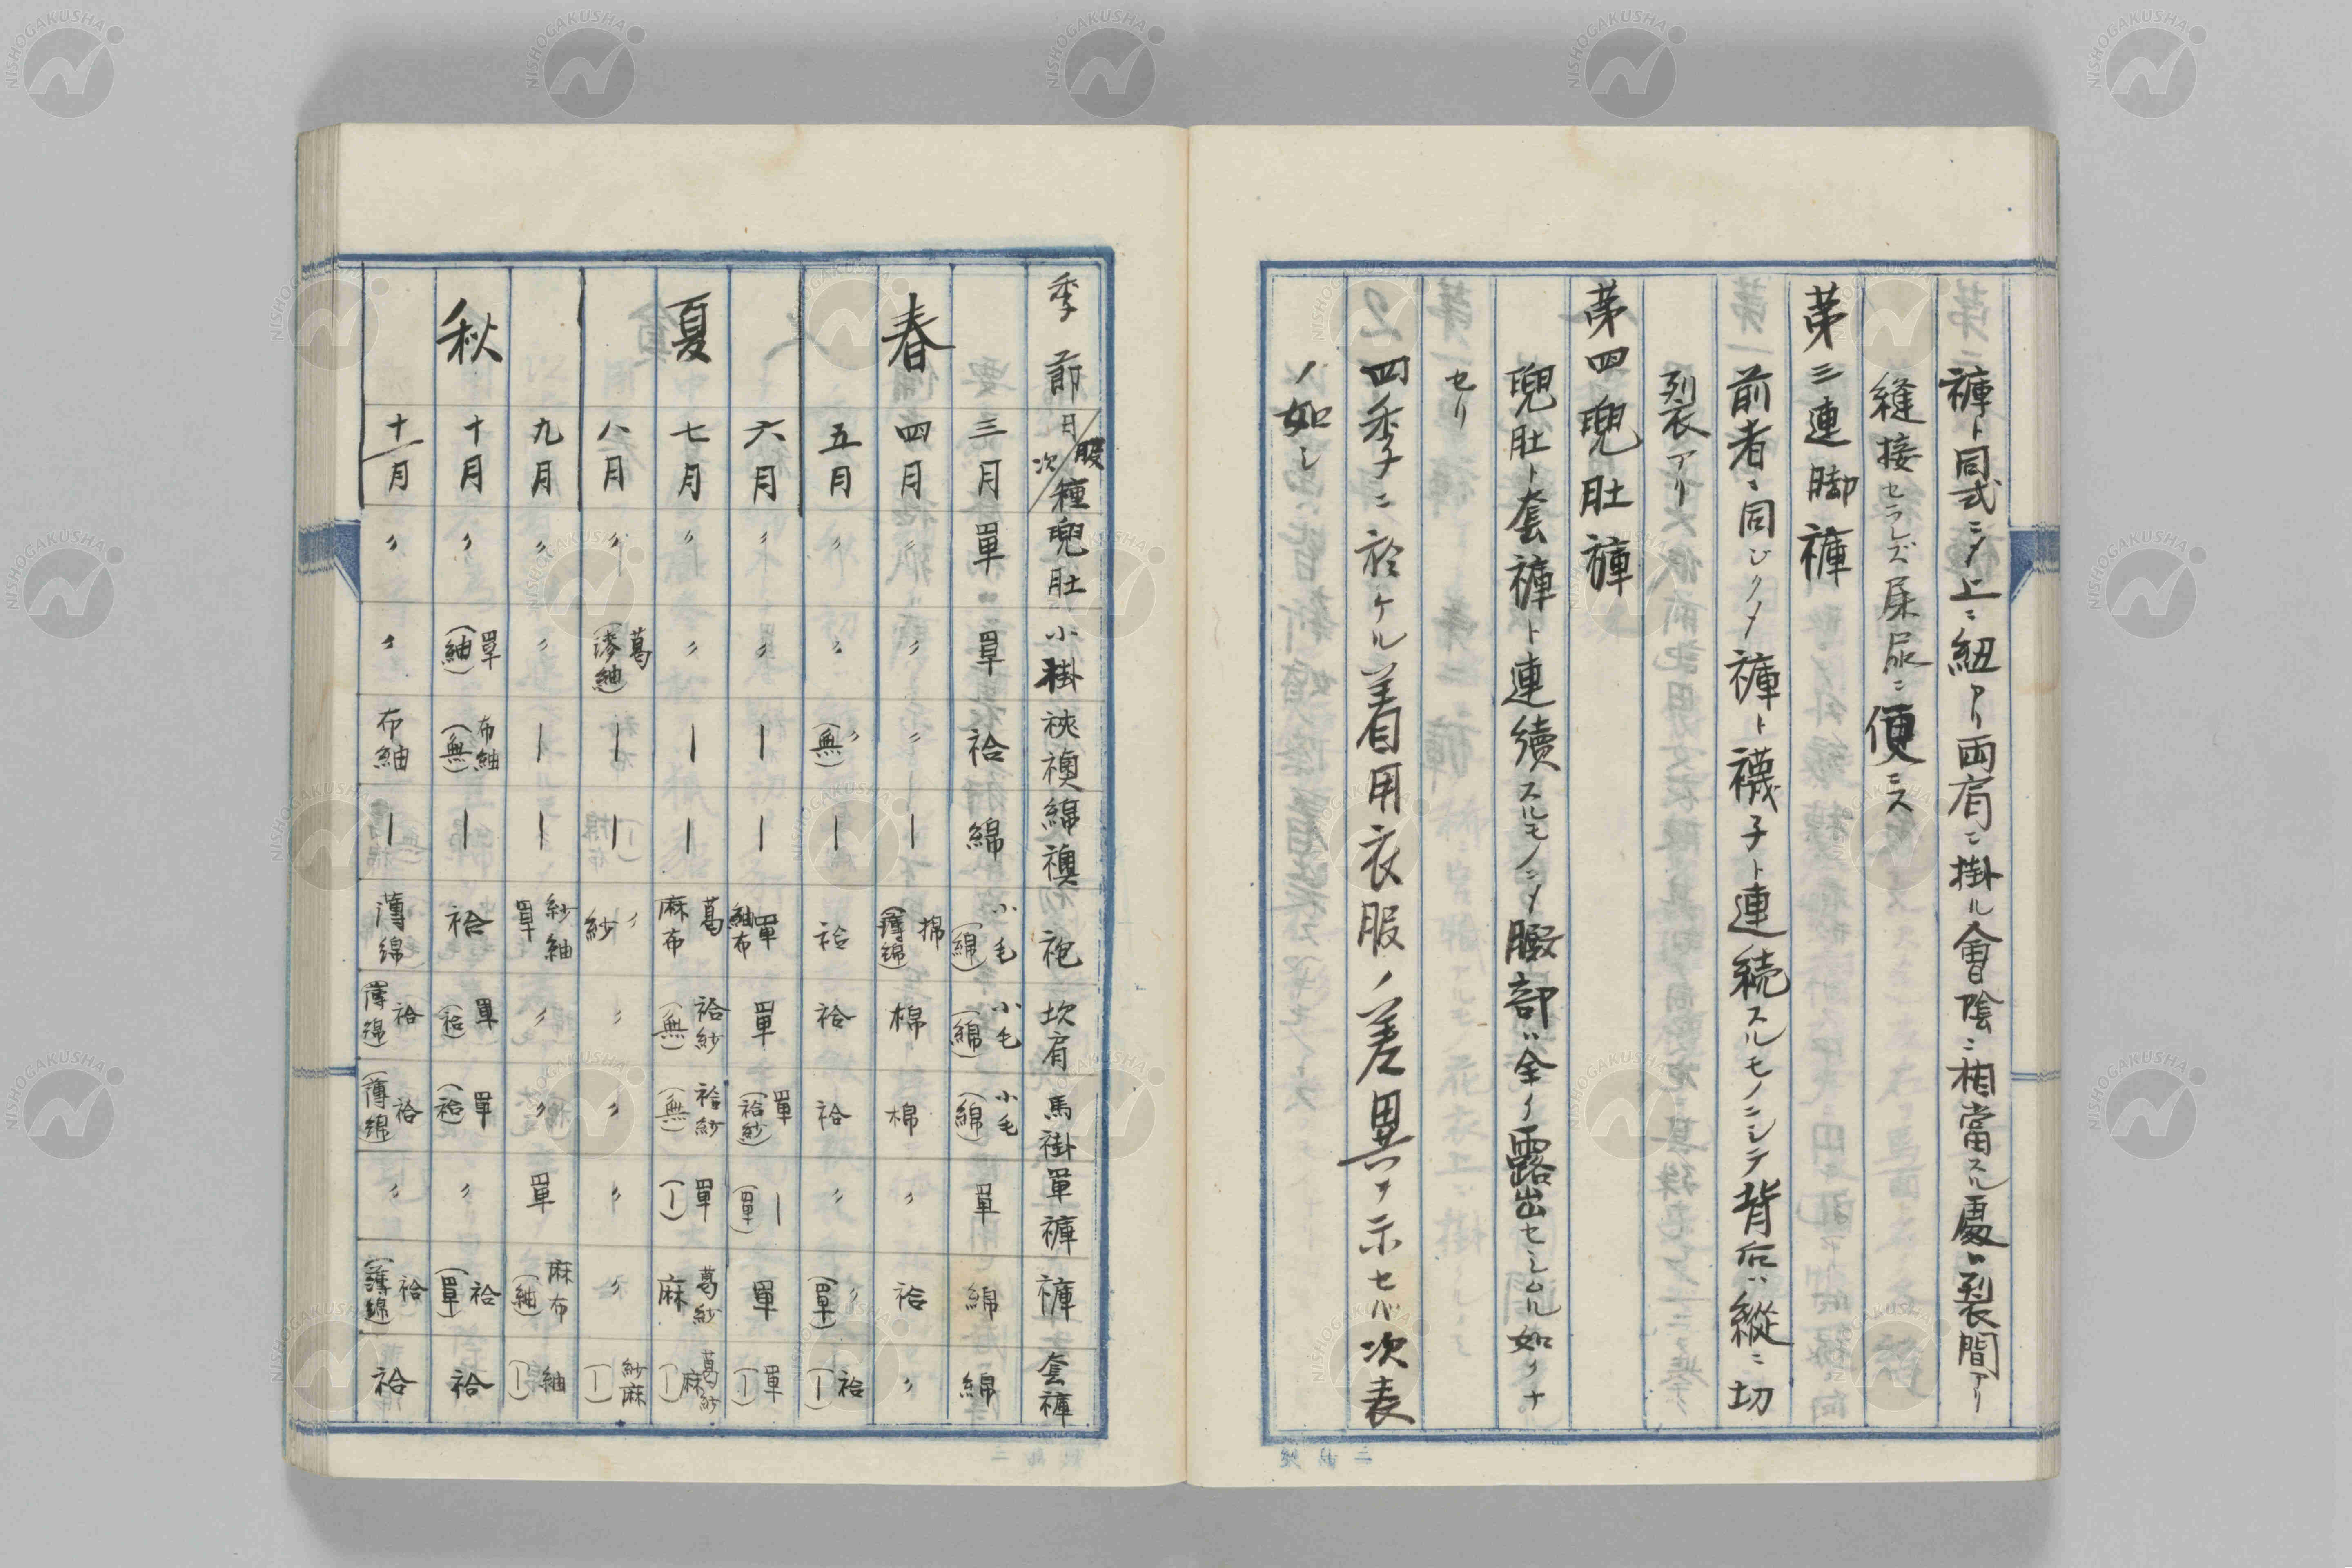 褲ト同式ニメ上ニ紐アリ両肩ニ掛ル會陰ニ相當スル處ハ裂間アリ
縫接セラレズ屎尿ニ便ニス
第三連脚褲
前者ニ同ジクメ褲ト襪子ト連続スルモノニシテ背后ハ縱ニ切
裂アリ
第四兜肚褲
兜肚ト套褲ト連續スルモノニメ臀部ハ全ク露出セシムル如クナ
セリ
四季ニ於ケル着用衣服ノ差異ヲ示セバ次表
ノ如シ
季節 月次/服種 兜肚 小掛 裌襖 綿襖 袍 坎肩 馬褂 單褲 褲 套褲
春
三月 單 單 袷 綿 小毛(綿) 小毛(綿) 小毛(綿) 單 綿 綿
四月 〃 〃 〃 ー 棉(薄綿) 棉 棉 〃 袷 〃
五月 〃 〃 〃(無) ー 袷 袷 袷 〃 〃(單) 袷(ー)
夏
六月 〃 〃 ー ー 單紬布 單 單(袷紗) ー(單) 單 單(ー)
七月 〃 〃 ー ー 葛麻布 袷紗(無) 袷紗(無) 單(ー) 葛紗麻 葛紗麻(ー)
八月 〃 葛(紬) ー ー 〃紗 〃 〃 〃 〃 紗麻(ー)
秋
九月 〃 〃 ー ー 紗紬單 〃 〃 單 麻布(紬) 紬(ー)
十月 〃 單(紬) 布紬(無) ー 袷 單(袷) 單(袷) 〃 袷(單) 袷
十一月 〃 〃 布紬 ー 薄綿 袷(薄綿) 袷(薄綿) 〃 袷(薄綿) 袷
NISHOGAKUSHA